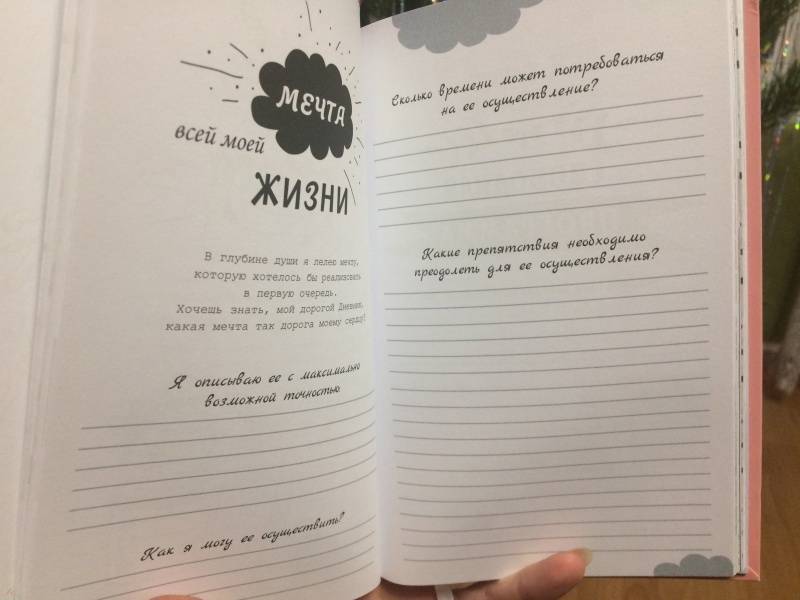 МЕЧТА
всей моей
ЖИЗНИ
В глубине души я лелею мечту,
которую хотелось бы реализовать
в первую очередь.
Хочешь знать, мой дорогой Дневник,
какая мечта так дорога моему сердцу?
Я описываю ее с максимально
возможной точностью
Как я могу ее осуществить?
Сколько времени может потребоваться
на ее осуществление?
Какие препятствия необходимо
преодолеть для ее осуществления?